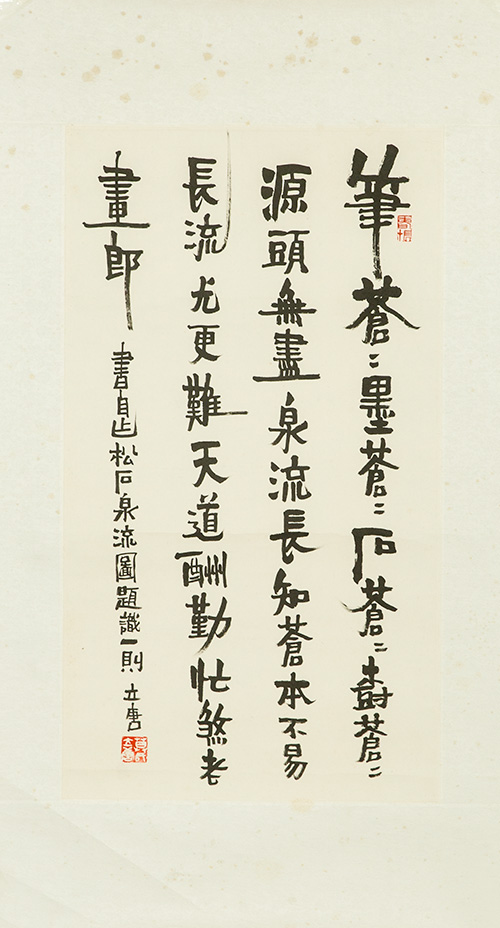 筆蒼〻墨蒼〻石蒼〻樹蒼〻
源頭無盡泉流長知蒼本不易
長流尤更難天道酬勤忙煞老
畫郎
書自作松石泉流圖題識一則 立唐